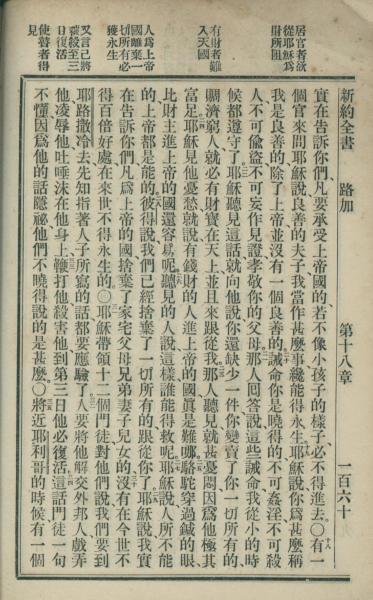 新約全書　路加　第十八章　一百六十
居官者欲
從耶穌爲
財所阻
有財者難
入天國
人爲上帝
國離棄一
切所有必
獲永生
又言己將
被殺至三
日復活
使瞽者得
見
實在告訴你們、凡要承受上帝國的、若不像小孩子的樣子、必不得進去。○有一
個官來問耶穌說、良善的夫子、我當作甚麽事、纔能得永生、耶穌說、你爲甚麽稱
我是良善的、除了上帝、並沒有一個良善的、誡命你是曉得的、不可姦淫、不可殺
人、不可偸盜、不可妄作見證、孝敬你的父母、那人囘答說、這些誡命我從小的時
候都遵守了、耶穌聽見這話、就向他說、你還缺少一件、你變賣了你一切所有的、
賙濟窮人、就必有財寶在天上、並且來跟從我、那人聽見、就甚憂悶、因爲他極其
富足、耶穌見他憂愁、就說有錢財的人、進上帝的國、眞是難哪、駱駝穿過鍼的眼、
比財主進上帝的國、還容易呢、聽見的人說、這樣誰能得救呢、耶穌說、人所不能
的、上帝都是能的、彼得說、我們已經捨棄了一切所有的跟從你了、耶穌說、我實
在告訴你們、凡爲上帝的國、捨棄了家宅父母兄弟妻子兒女的、沒有在今世不
得百倍好處、在來世不得永生的。○耶穌帶領十二個門徒、對他們說、我們要到
耶路撒冷去、先知指著人子所寫的話、都要應驗了、人要將他解交外邦人、戲弄
他、凌辱他、吐唾沫在他身上、鞭打他、殺害他、到第三日他必復活、這話門徒一句
不懂、因爲他的話隱祕、他們不曉得說的是甚麽。○將近耶利哥的時候、有一個